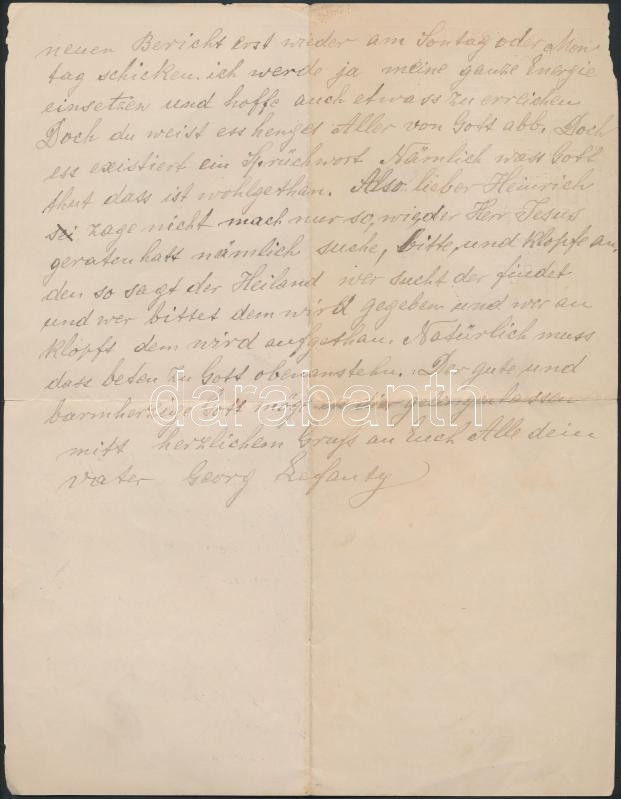 neuen Bericht erst wieder am Sontag oder Mon
tag schicken, ich werde ja meine ganze Energie
einsetzen und hoffe auch etwass zu erreichen
Doch du weist ess henget Aller von Gott abb. Doch
ess existiert ein Sprüchwort Nämlich wass Gott
thut dass ist wohlgethan. Also lieber Heinrich
zage nicht mach nur so, wie der Herr Jesus
geraten hatt nämlich suche, bitte, und klopfe an,
den so sagt der Heiland wer sucht der findet
und wer bittet dem wird gegeben und wer an
klopft dem wird aufgethan. Natürlich muss
dass beten zu Gott obenanstehn. Der gute und
barmherzige Gott möge es dir gelingen lassen
mitt herzlichem Gruss an Euch Alle dein
vater Georg
darabanth